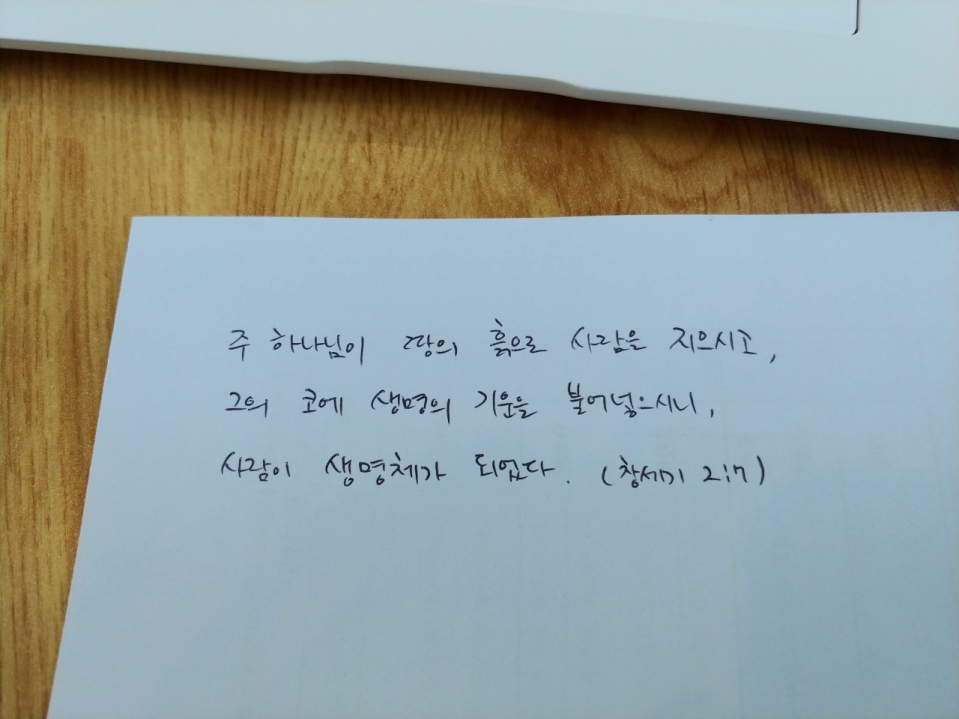 주 하나님이 땅의 흙으로 사람을 지으시고,
그의 코에 생명의 기운을 불어넣으시니,
사람이 생명체가 되었다. (창세기 2:7)